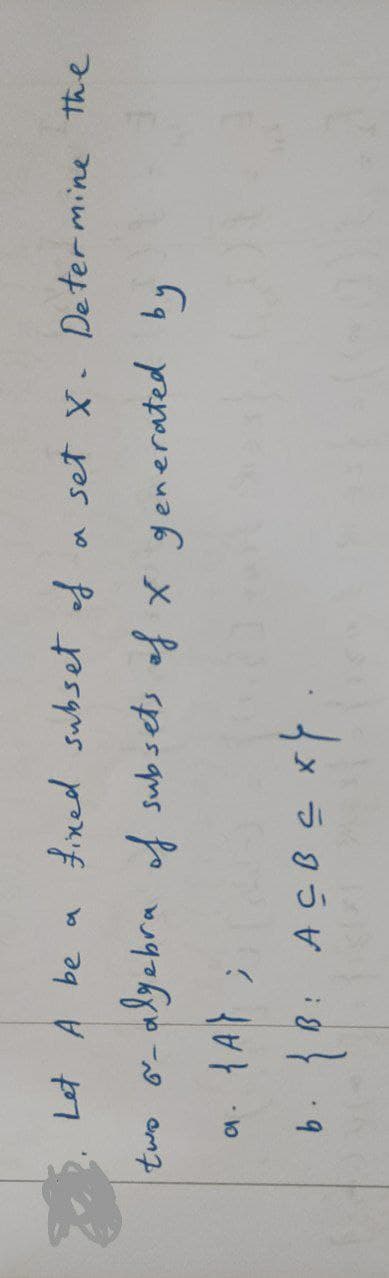 . Let A be a fixed subset of a set X. Determine the
two σ-algebra of subsets of X generated by
a. {A} ;
b. { B : A ⊆ B ⊆ X }.